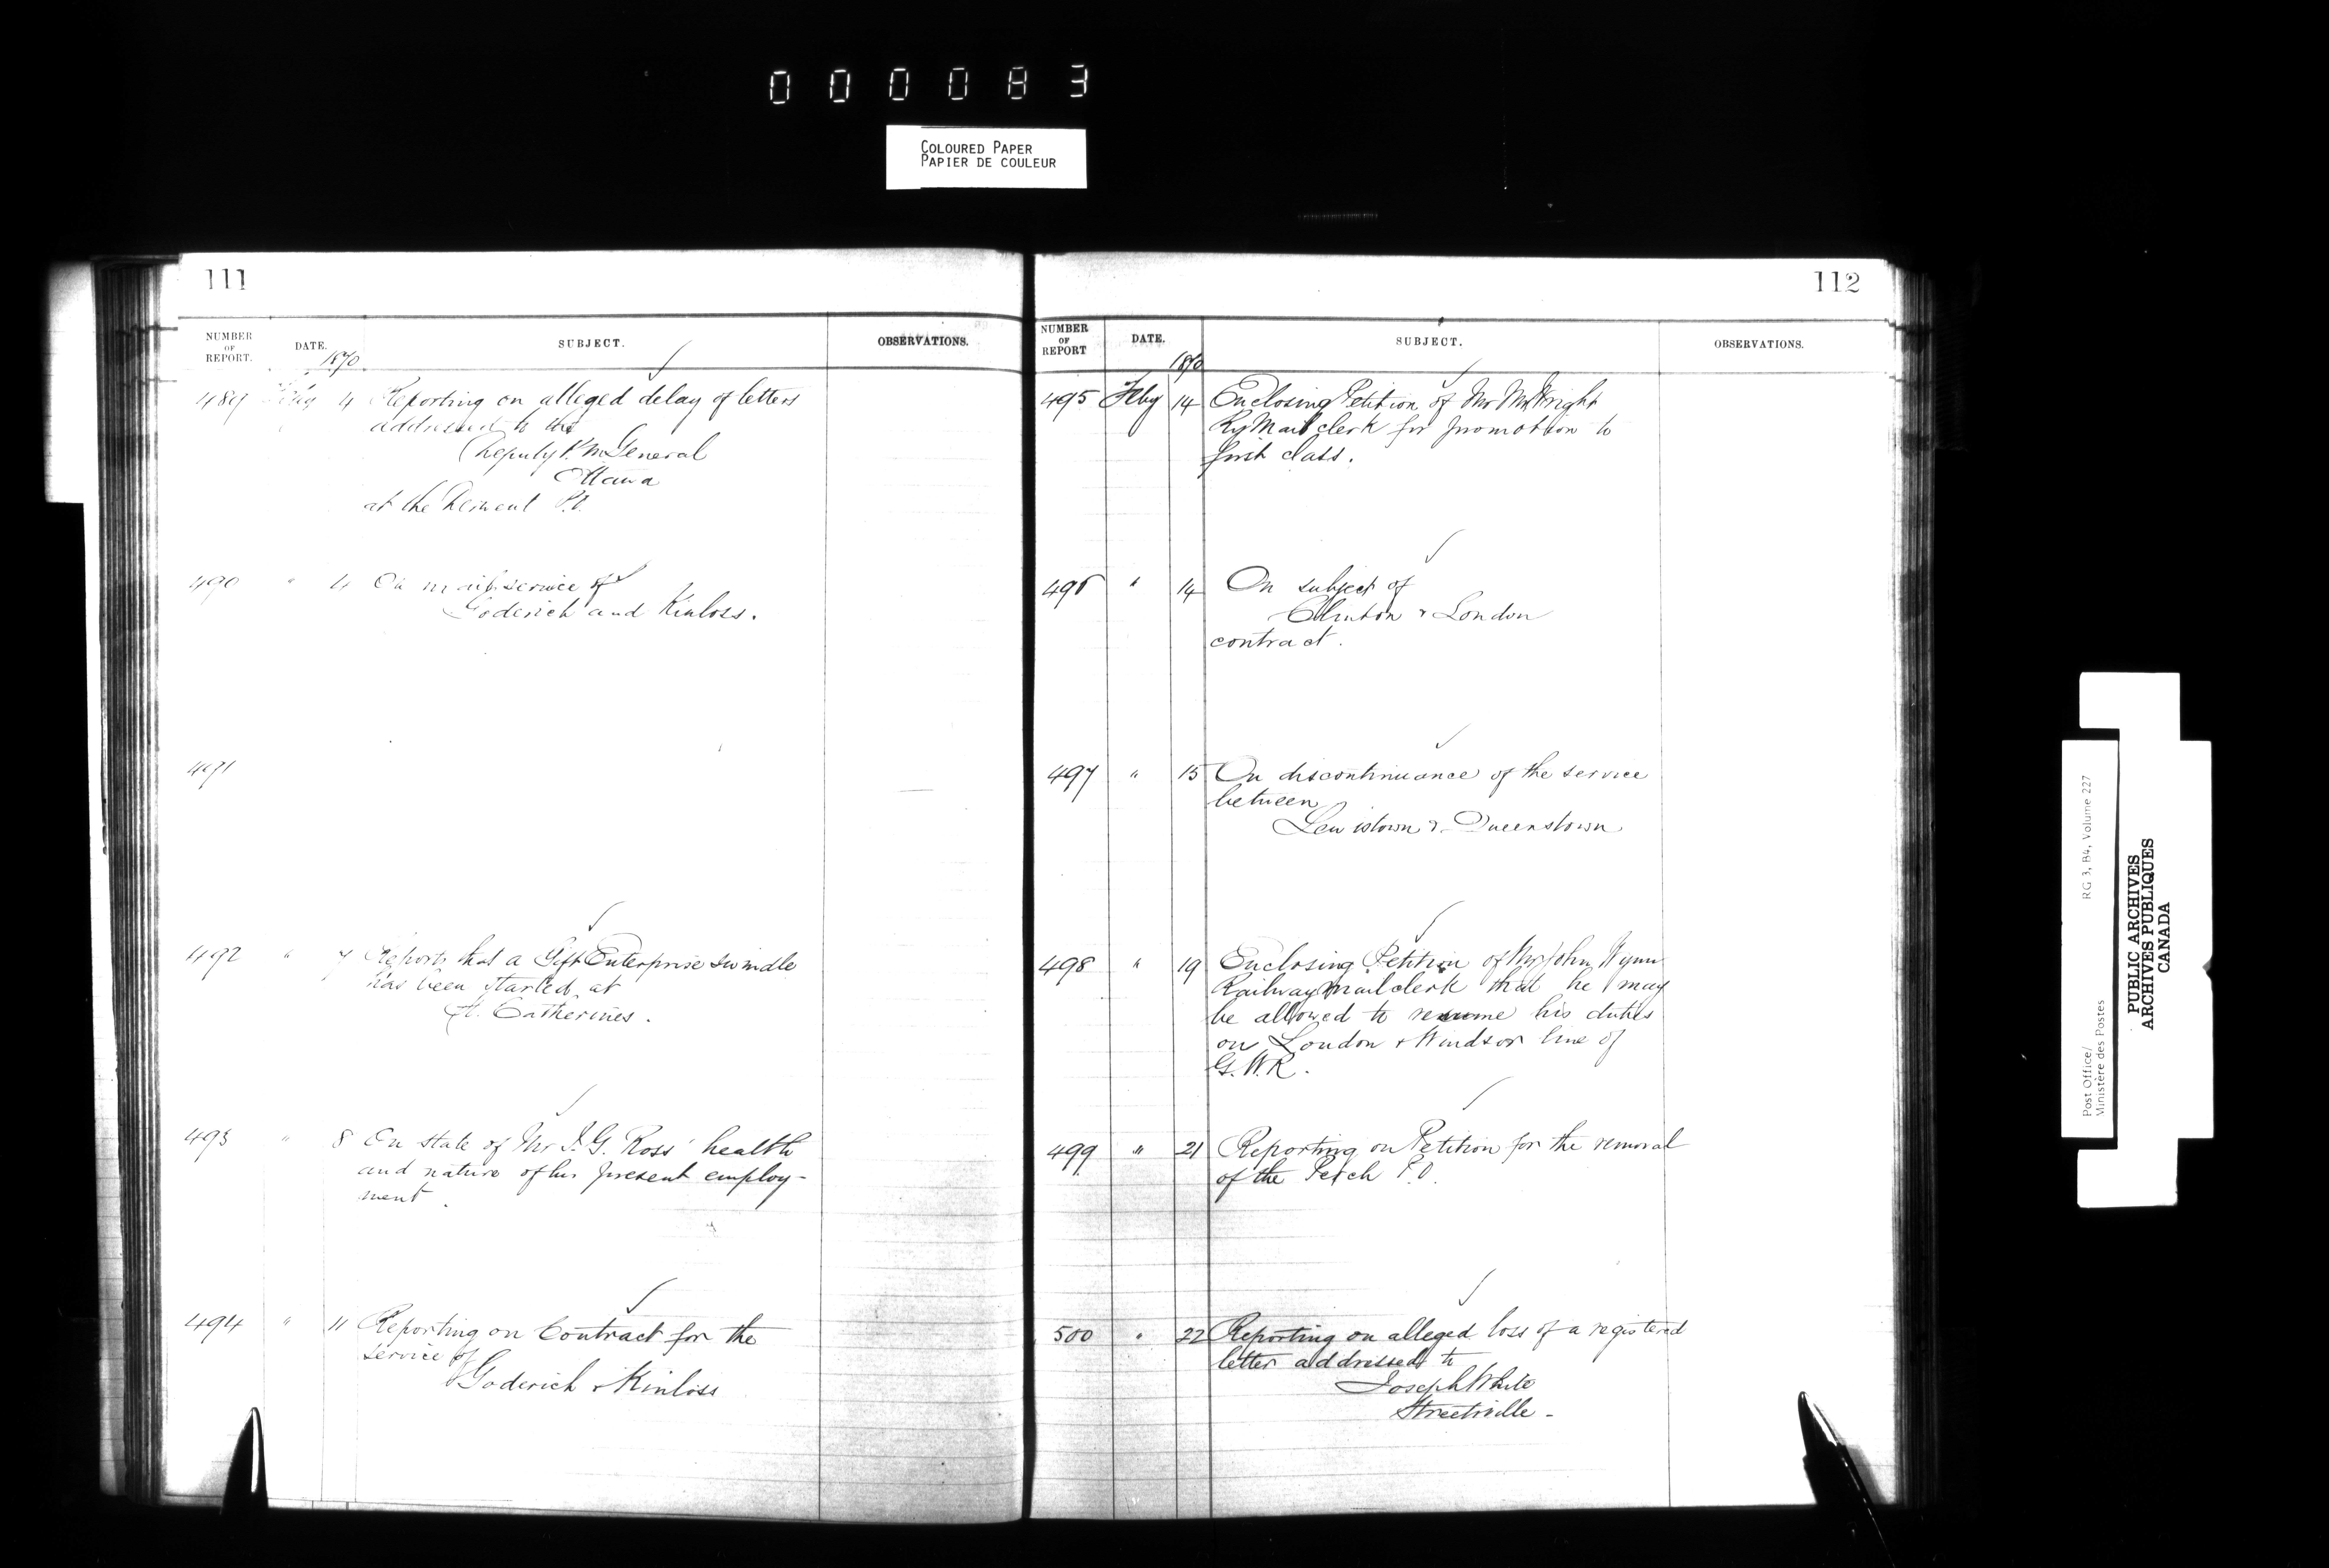 000083
COLOURED PAPER
PAPIER DE COULEUR
111
NUMBER OF REPORT. DATE. SUBJECT. OBSERVATIONS.
1870
489 Feby 4 Reporting on alleged delay of letters
addressed to the
Deputy P. M General
Ottawa
at the P.O.
490 " 4 On mail service of
Goderich and Kinloss.
491
492 " 7 Reports that a Gift Enterprise swindle
has been started at
St. Catherines.
493 " 8 On state of Mr J. G. Ross' health
and nature of his present employ-
ment.
494 " 11 Reporting on Contract for the
service of
Goderich & Kinloss
112
NUMBER OF REPORT DATE. SUBJECT. OBSERVATIONS.
1870
495 Feby 14 Enclosing Petition of Mr Wright
Ry Mail clerk for promotion to
first class.
496 " 14 On subject of
Clinton & London
contract.
497 " 15 On discontinuance of the service
between
Lewistown & Queenstown
498 " 19 Enclosing Petition of Mr John Wynn
Railway mail clerk that he may
be allowed to resume his duties
on London & Windsor line of
G.W.R.
499 " 21 Reporting on Petition for the removal
of the Perch P.O.
500 " 22 Reporting on alleged loss of a registered
letter addressed to
Joseph White
Streetsville -
Post Office/ RG 3, B4, Volume 227
Ministère des Postes
PUBLIC ARCHIVES
ARCHIVES PUBLIQUES
CANADA